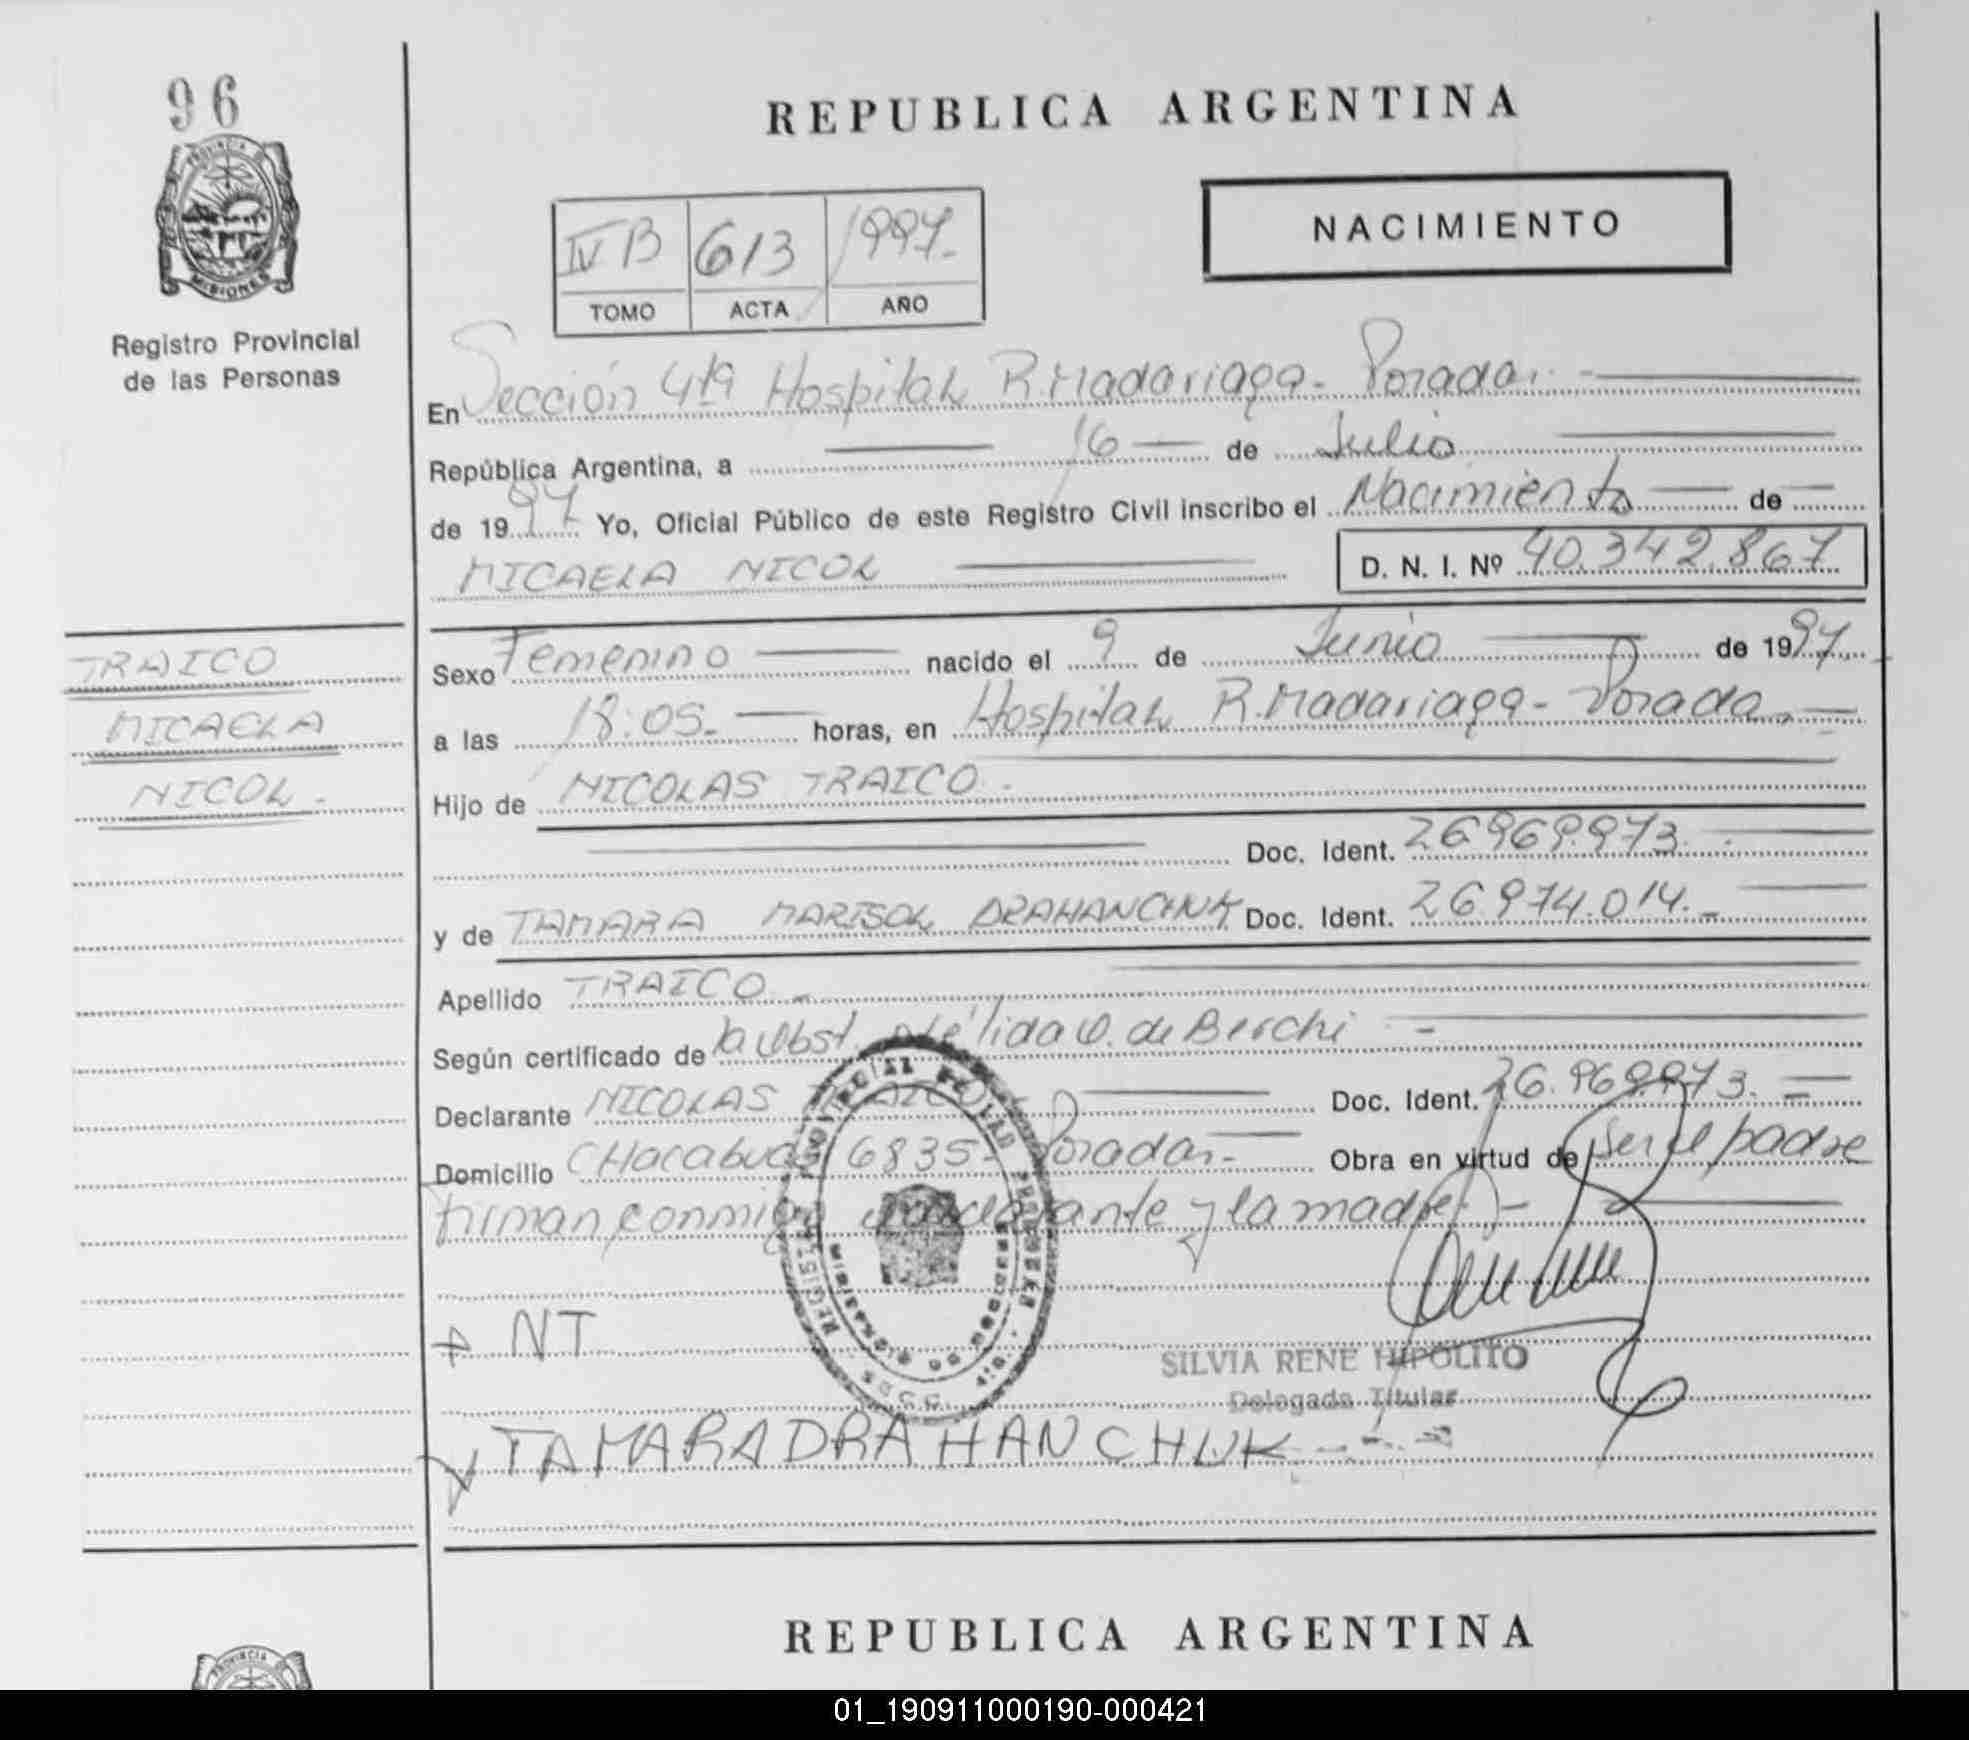 96
REPUBLICA ARGENTINA
PROVINCIA DE
MISIONES
Registro Provincial
de las Personas
NACIMIENTO
IV B 613 1997.-
TOMO ACTA AÑO
En Sección 4ta Hospital R. Madariaga - Posadas.-
República Argentina, a 16 de Julio
de 1997 Yo, Oficial Público de este Registro Civil inscribo el Nacimiento de
MICAELA NICOL D. N. I. Nº 40.342.867
TRAICO
MICAELA
NICOL.-
Sexo Femenino nacido el 9 de Junio de 1997
a las 18:05.- horas, en Hospital R. Madariaga - Posadas.-
Hijo de NICOLAS TRAICO.-
Doc. Ident. 26.969.973.-
y de TAMARA MARISOL DRAHANCHUK Doc. Ident. 26.974.014.-
Apellido TRAICO.-
Según certificado de la Obst. Nélida O. de Berchi -
Declarante NICOLAS TRAICO.- Doc. Ident. 26.969.973.-
Domicilio CHacabuco 6835- Posadas.- Obra en virtud de ser el padre
Firman conmigo el declarante y la madre.-
NT
SILVIA RENE HIPOLITO
Delegada Titular
TAMARA DRAHANCHUK
REPUBLICA ARGENTINA
PROVINCIA DE
01_190911000190-000421